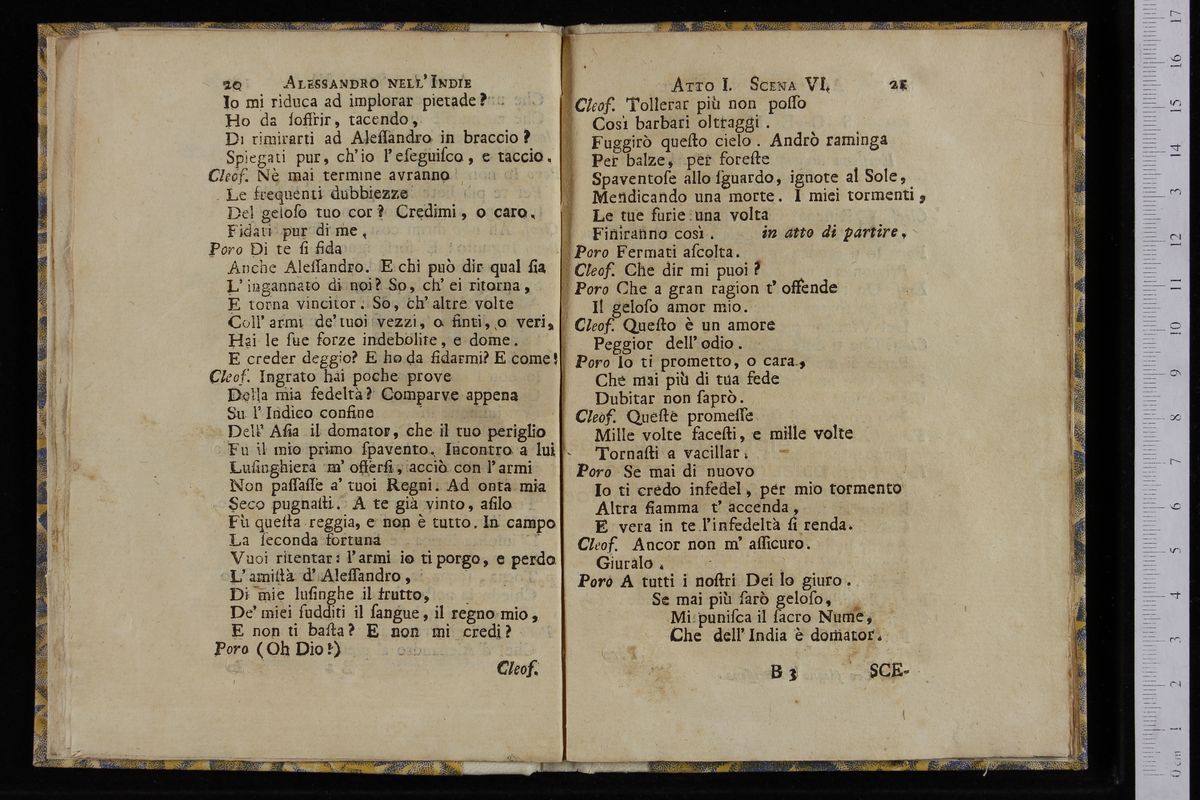 20 ALESSANDRO NELL' INDIE
Io mi riduca ad implorar pietade?
Ho da ſoffrir, tacendo,
Di rimirarti ad Aleſſandro in braccio?
Spiegati pur, ch'io l'eſeguiſco, e taccio.
Cleof. Nè mai termine avranno
Le frequenti dubbiezze
Del geloſo tuo cor? Credimi, o caro,
Fidati pur di me,
Poro Di te ſi fida
Anche Aleſſandro. E chi può dir qual ſia
L'ingannato di noi? So, ch'ei ritorna,
E torna vincitor. So, ch'altre volte
Coll'armi de'tuoi vezzi, o finti, o veri,
Hai le ſue forze indebolite, e dome.
E creder deggio? E ho da fidarmi? E come!
Cleof. Ingrato hai poche prove
Della mia fedeltà? Comparve appena
Su l'Indico confine
Dell'Aſia il domator, che il tuo periglio
Fu il mio primo ſpavento. Incontro a lui
Luſinghiera m'offerſi, acciò con l'armi
Non paſſaſſe a'tuoi Regni. Ad onta mia
Seco pugnaſti. A te già vinto, aſilo
Fù queſta reggia, e non è tutto. In campo
La ſeconda fortuna
Vuoi ritentar: l'armi io ti porgo, e perdo
L'amiſtà d'Aleſſandro,
Di mie luſinghe il frutto,
De'miei ſudditi il ſangue, il regno mio,
E non ti baſta? E non mi credi?
Poro (Oh Dio!)
Cleof.
ATTO I. SCENA VI. 21
Cleof. Tollerar più non poſſo
Così barbari oltraggi.
Fuggirò queſto cielo. Andrò raminga
Per balze, per foreſte
Spaventoſe allo ſguardo, ignote al Sole,
Mendicando una morte. I miei tormenti,
Le tue furie una volta
Finiranno così. in atto di partire.
Poro Fermati aſcolta.
Cleof. Che dir mi puoi?
Poro Che a gran ragion t'offende
Il geloſo amor mio.
Cleof. Queſto è un amore
Peggior dell'odio.
Poro Io ti prometto, o cara,
Che mai più di tua fede
Dubitar non ſaprò.
Cleof. Queſte promeſſe
Mille volte faceſti, e mille volte
Tornaſti a vacillar.
Poro Se mai di nuovo
Io ti credo infedel, per mio tormento
Altra fiamma t'accenda,
E vera in te l'infedeltà ſi renda.
Cleof. Ancor non m'aſſicuro.
Giuralo.
Poro A tutti i noſtri Dei lo giuro.
Se mai più ſarò geloſo,
Mi puniſca il ſacro Nume,
Che dell'India è domator.
B 3 SCE-
0 cm 1 2 3 4 5 6 7 8 9 10 11 12 13 14 15 16 17